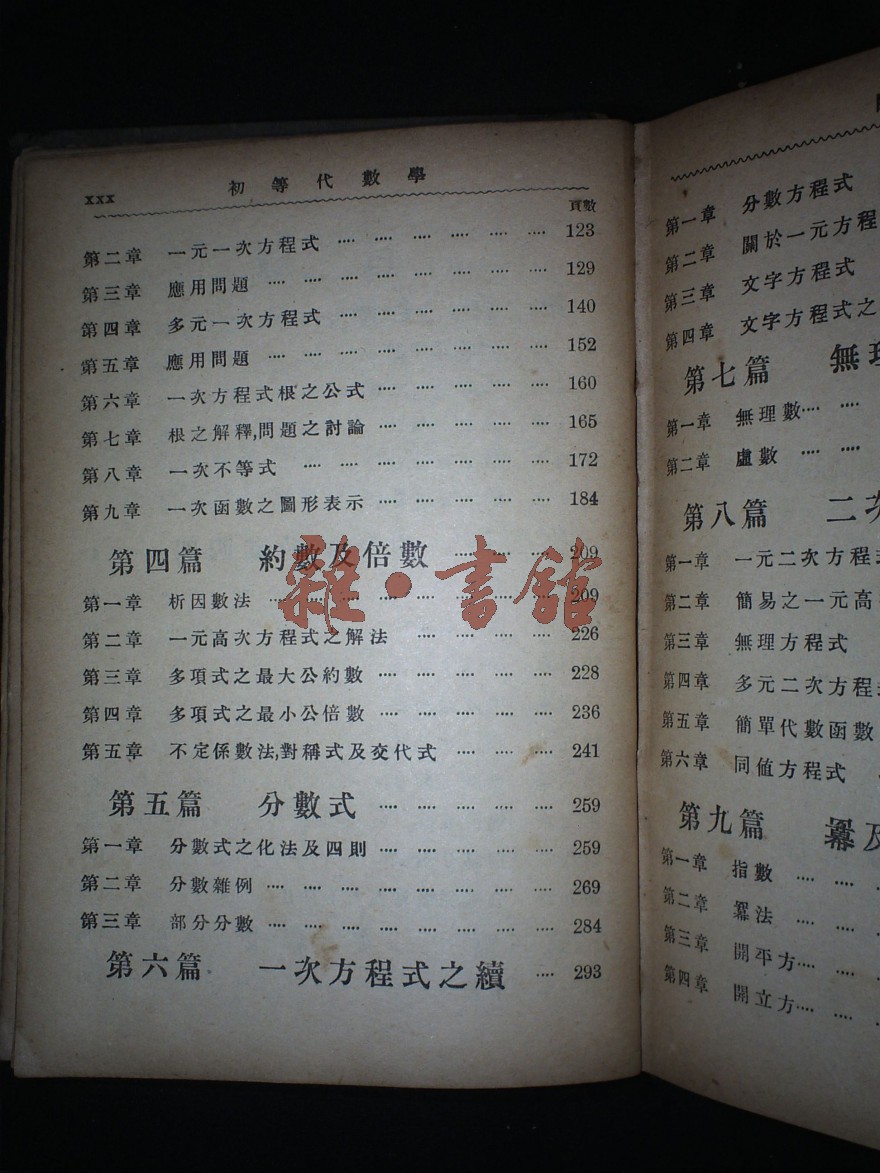 xxx 初等代數學
頁數
第二章 一元一次方程式 ···· ···· ···· ···· ···· ···· 123
第三章 應用問題 ···· ···· ···· ···· ···· ···· ···· ···· 129
第四章 多元一次方程式 ···· ···· ···· ···· ···· ···· 140
第五章 應用問題 ···· ···· ···· ···· ···· ···· ···· ···· 152
第六章 一次方程式根之公式 ···· ···· ···· ···· ···· 160
第七章 根之解釋,問題之討論 ···· ···· ···· ···· ···· 165
第八章 一次不等式 ···· ···· ···· ···· ···· ···· ···· 172
第九章 一次函數之圖形表示 ···· ···· ···· ···· ···· 184
第四篇 約數及倍數 ···· ···· ···· ···· 209
第一章 析因數法 ···· ···· ···· ···· ···· ···· ···· ···· 209
第二章 一元高次方程式之解法 ···· ···· ···· ···· 226
第三章 多項式之最大公約數 ···· ···· ···· ···· ···· 228
第四章 多項式之最小公倍數 ···· ···· ···· ···· ···· 236
第五章 不定係數法,對稱式及交代式 ···· ···· ···· 241
第五篇 分數式 ···· ···· ···· ···· ···· 259
第一章 分數式之化法及四則 ···· ···· ···· ···· ···· 259
第二章 分數雜例 ···· ···· ···· ···· ···· ···· ···· ···· 269
第三章 部分分數 ···· ···· ···· ···· ···· ···· ···· ···· 284
第六篇 一次方程式之續 ···· 293
雜·書館
第一章 分數方程式
第二章 關於一元方程
第三章 文字方程式
第四章 文字方程式之
第七篇 無理
第一章 無理數···· ····
第二章 虛數 ···· ····
第八篇 二次
第一章 一元二次方程式
第二章 簡易之一元高
第三章 無理方程式
第四章 多元二次方程
第五章 簡單代數函數
第六章 同値方程式
第九篇 冪及
第一章 指數 ···· ····
第二章 冪法 ···· ····
第三章 開平方···· ····
第四章 開立方···· ····